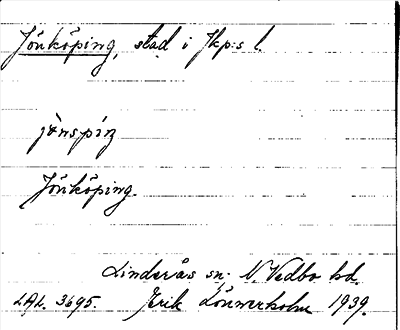 Jönköping, stad i Jkp:s l.
jönspiŋ
Jönköping.
Linderås sn. N. Vedbo hd.
LAL. 3695. Erik Lönnerholm 1939.